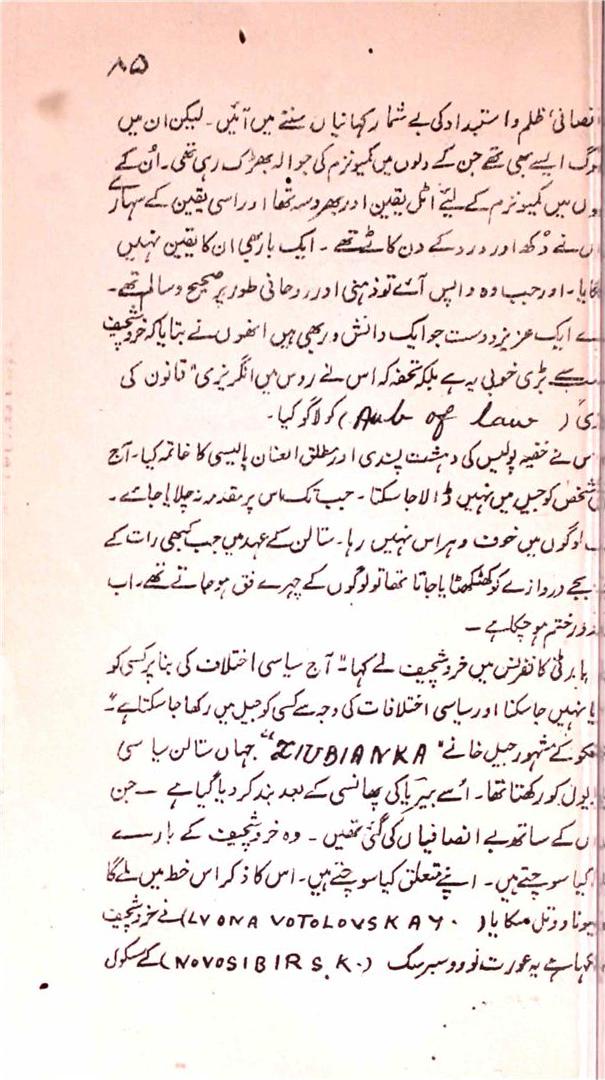 ۸۵
انصافی، ظلم و استبداد کی بے شمار کہانیاں سننے میں آئیں۔ لیکن ان میں
لوگ ایسے بھی تھے جن کے دلوں میں کمیونزم کی جوالا بھڑک رہی تھی۔ اُن کے
میں کمیونزم کے لئے اٹل یقین اور بھروسہ تھا اور اسی یقین کے سہارے
نے دُکھ اور درد کے دن کاٹے تھے۔ ایک بار بھی ان کا یقین نہیں
اور جب وہ واپس آئے تو ذہنی اور روحانی طور پر صحیح و سالم تھے۔
ایک عزیز دوست جو ایک دانش ور بھی ہیں انھوں نے بتایا کہ خروشچیف
سب سے بڑی خوبی یہ ہے بلکہ تحفہ کہ اس نے روس میں انگریزی" قانون کی
(Aulo of law) کو لاگو کیا۔
اس نے خفیہ پولیس کی دہشت پسندی اور مطلق العنان پالیسی کا خاتمہ کیا۔ آج
شخص کو جیل میں نہیں ڈالا جا سکتا۔ جب تک اس پر مقدمہ نہ چلایا جائے۔
لوگوں میں خوف و ہراس نہیں رہا۔ ستالن کے عہد میں جب کبھی رات کے
بجے دروازے کو کھٹکھٹایا جاتا تھا تو لوگوں کے چہرے فق ہو جاتے تھے۔ اب
دور ختم ہو چکا ہے۔
پارٹی کانفرنس میں خروشچیف نے کہا۔ "آج سیاسی اختلاف کی بنا پر کسی کو
نہیں جا سکتا اور سیاسی اختلافات کی وجہ سے کسی کو جیل میں رکھا جا سکتا ہے۔"
کے مشہور جیل خانے "ZIUBIANKA" جہاں ستالن سیاسی
کو رکھتا تھا۔ اُسے بیریا کی پھانسی کے بعد بند کر دیا گیا ہے — جن
کے ساتھ بے انصافیاں کی گئی تھیں۔ وہ خروشچیف کے بارے
کیا سوچتے ہیں۔ اپنے متعلق کیا سوچتے ہیں۔ اس کا ذکر اس خط میں ملے گا
(LVONA VOTOLOVSKAY.) نے خروشچیف
ہے یہ عورت نوووسبرسک (NOVOSIBIRSK.) کے سکول